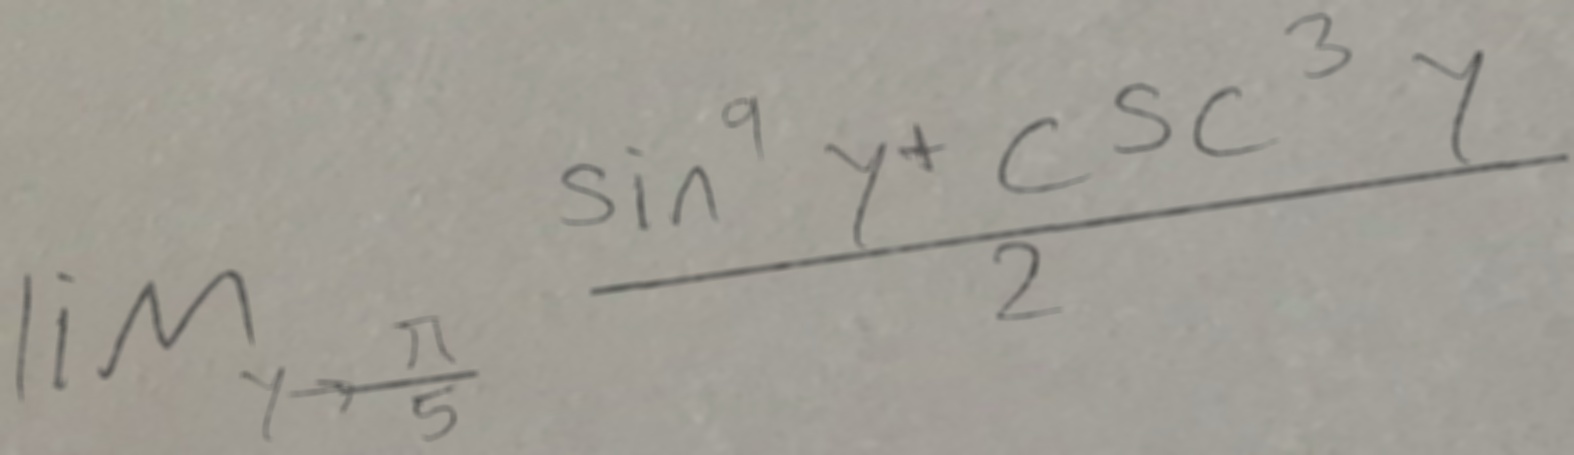 lim_{y→\frac{π}{5}} \frac{sin^9 y + csc^3 y}{2}